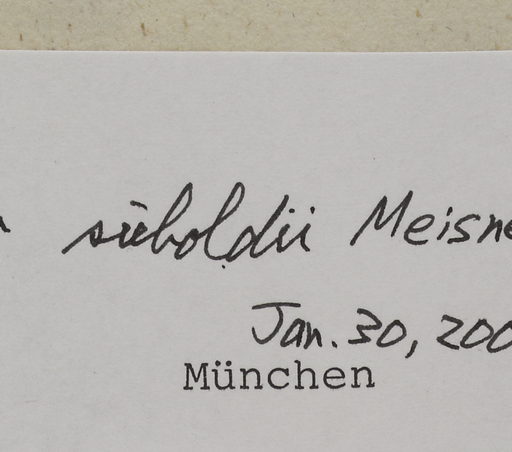 sieboldii Meisne
Jan. 30, 200
München